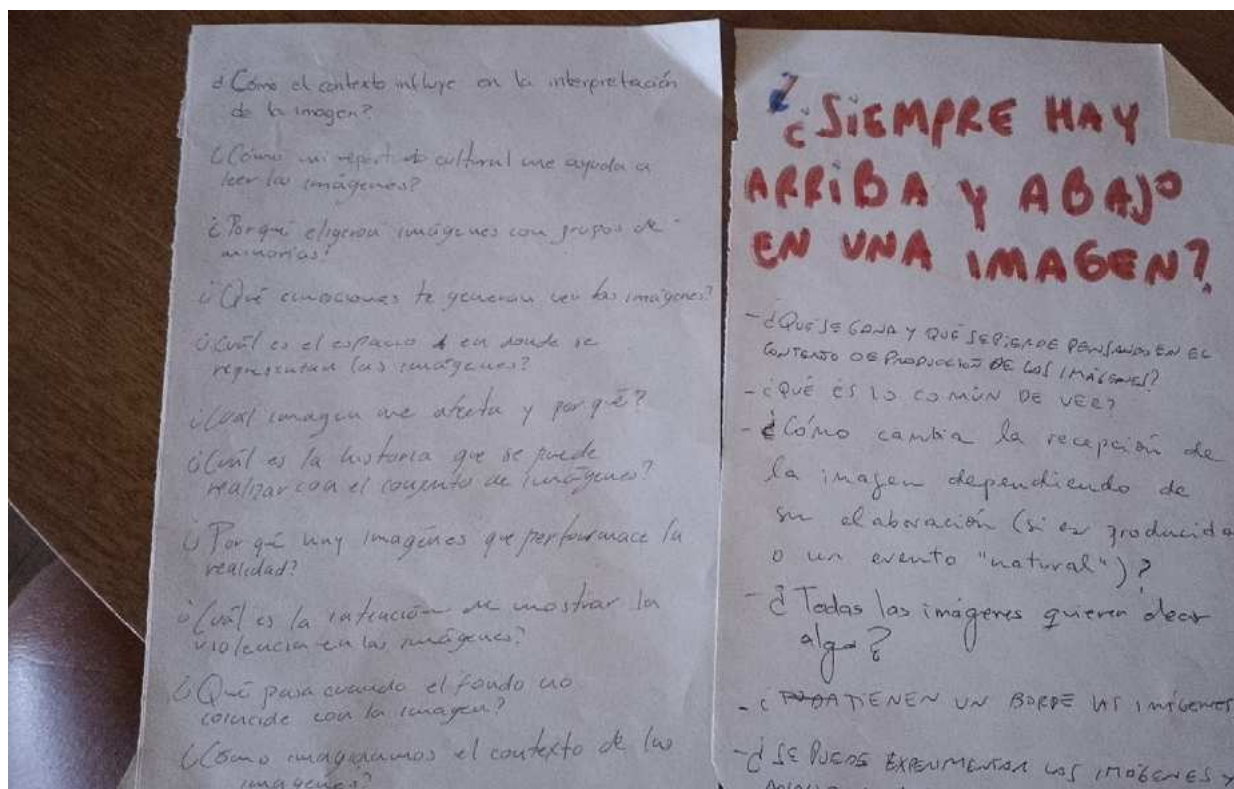 ¿Cómo el contexto influye en la interpretación
de la imagen?
¿Cómo mi repertorio cultural me ayuda a
leer las imágenes?
¿Porqué eligeron imágenes con grupos de
minorias?
¿Qué emociones te generan ver las imágenes?
¿Cuál es el espacio en donde se
representan las imágenes?
¿Cuál imagen me afecta y por qué?
¿Cuál es la historia que se puede
realizar con el conjunto de imágenes?
¿Por qué hay imagenes que performace la
realidad?
¿Cuál es la intención de mostrar la
violencia en las imágenes?
¿Qué pasa cuando el fondo no
coincide con la imagen?
¿Cómo imaginamos el contexto de las
imagenes?
¿SIEMPRE HAY
ARRIBA Y ABAJO
EN UNA IMAGEN?
- ¿QUÉ SE GANA Y QUÉ SE PIERDE PENSANDO EN EL
CONTEXTO DE PRODUCCIÓN DE LAS IMÁGENES?
- ¿QUÉ ES LO COMÚN DE VER?
- ¿Cómo cambia la recepción de
la imagen dependiendo de
su elaboración (si es producida
o un evento "natural")?
- ¿Todas las imágenes quieren decir
algo?
- ¿ TIENEN UN BORDE LAS IMÁGENES
- ¿SE PUEDE EXPERIMENTAR LAS IMÁGENES Y